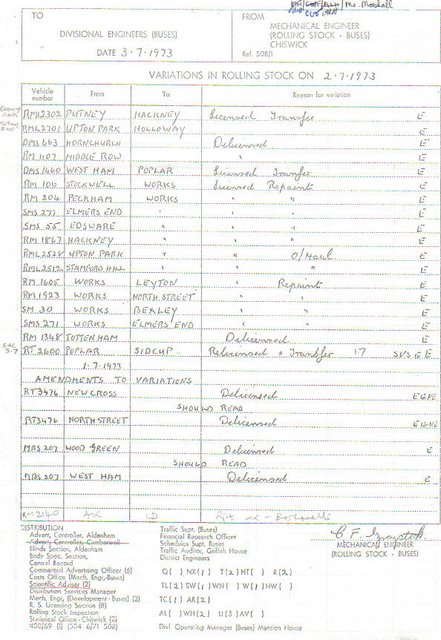 Mr. Marshall
TO
DIVISIONAL ENGINEERS (BUSES)
DATE 3.7.1973
FROM
MECHANICAL ENGINEER
(ROLLING STOCK - BUSES)
CHISWICK
Ref. 508/1
VARIATIONS IN ROLLING STOCK ON 2.7.1973
Vehicle number From To Reason for variation
RML2302 PUTNEY HACKNEY Licensed Transfer E
RML2701 UPTON PARK HOLLOWAY " " E
DMS 643 HORNCHURCH Delicensed E
RM 1107 MIDDLE ROW " E
DMS 1440 WEST HAM POPLAR Licensed Transfer E
RM 106 STOCKWELL WORKS Licensed Repaint E
RM 204 PECKHAM WORKS " " E
SMS 277 ELMERS END " " " E
SMS 55 EDGWARE " " " E
RM 1867 HACKNEY " " " E
RML2528 UPTON PARK " " O/Haul E
RML2512 STAMFORD HILL " " " E
RM 1605 WORKS LEYTON " Repaint E
RM 1923 WORKS NORTH STREET " " E
SM 30 WORKS BEXLEY " " E
SMS 271 WORKS ELMERS END " " E
RM 1348 TOTTENHAM Delicensed E
RT 2600 POPLAR SIDCUP Relicensed & Transfer 17
1.7.1973
AMENDMENTS TO VARIATIONS
RT3476 NEW CROSS Delicensed
SHOULD READ
RT3476 NORTH STREET Delicensed
MBS 207 WOOD GREEN Delicensed E
SHOULD READ
MBS 207 WEST HAM Delicensed E
RM 2140
DISTRIBUTION
Advert, Controller, Aldenham
Advert, Controller, Camberwell
Blinds Section, Aldenham
Body Spec. Section,
Central Record
Commercial Advertising Officer (6)
Costs Office (Mech. Engr-Buses)
Scientific Adviser (2)
Distribution Services Manager
Mech. Engr, (Development - Buses) (2)
R. S. Licensing Section (8)
Rolling Stock Inspection
Statistical Office - Chiswick (2)
Traffic Supt. (Buses)
Financial Research Officer
Schedules Supt. Buses
Traffic Auditor, Griffith House
District Engineers
Q( ) NX( ) T(2)HT( ) R(2)
TL(2)SW( )WN( ) W( )HW( )
TC( ) AR(2)
AE( )WH(2) U(3)AV( )
Divl Operating Manager (Buses) Mansion House
MECHANICAL ENGINEER
(ROLLING STOCK - BUSES)